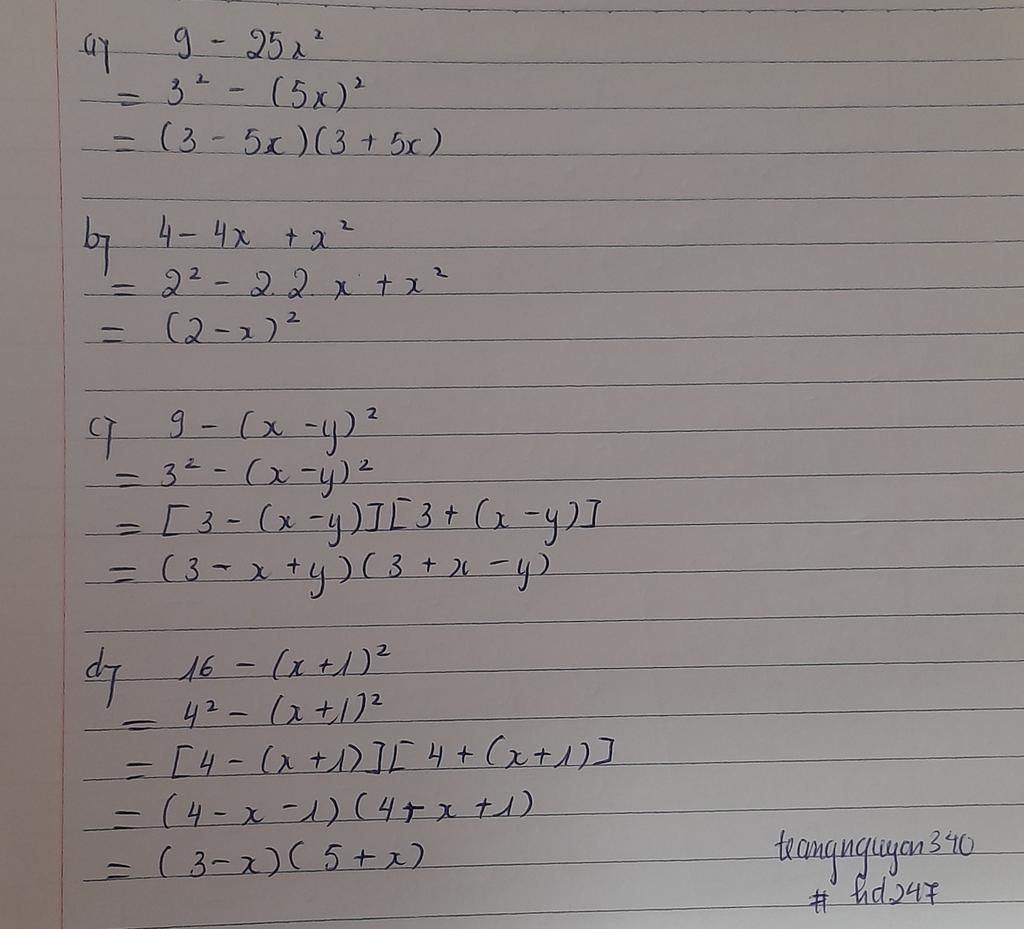 a) 9 - 25x²
= 3² - (5x)²
= (3 - 5x)(3 + 5x)
b) 4 - 4x + x²
= 2² - 2.2.x + x²
= (2 - x)²
c) 9 - (x - y)²
= 3² - (x - y)²
= [3 - (x - y)][3 + (x - y)]
= (3 - x + y)(3 + x - y)
d) 16 - (x + 1)²
= 4² - (x + 1)²
= [4 - (x + 1)][4 + (x + 1)]
= (4 - x - 1)(4 + x + 1)
= (3 - x)(5 + x)
# hd247